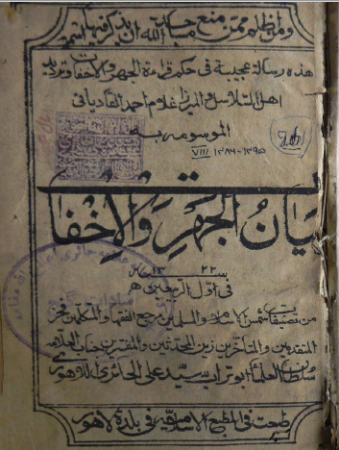 ومن اظلم ممن منع مساجد الله ان يذكر فيها اسمه
هذه رسالة عجيبة فى حكم قراءة الجهر والاخفات وترديد
اهل التلاسل والميرزا غلام احمد القاديانى
الموسومة به
VIII ١٣٨٦-١٣٩٥
بيان الجهر والاخفات
سنه ١٣٢٢
فى اول الربيعين
من تصنيفات شمس الاسلام والمسلمين مرجع الفقهاء والمتكلمين فخر
المتقدمين والمتأخرين زين المحدثين والمفسرين جناب العلامة
سلطان العلماء ابوتراب سيد على الحائرى اللاهورى
طبعت فى المطبع الاسلامية فى بلدة لاهور